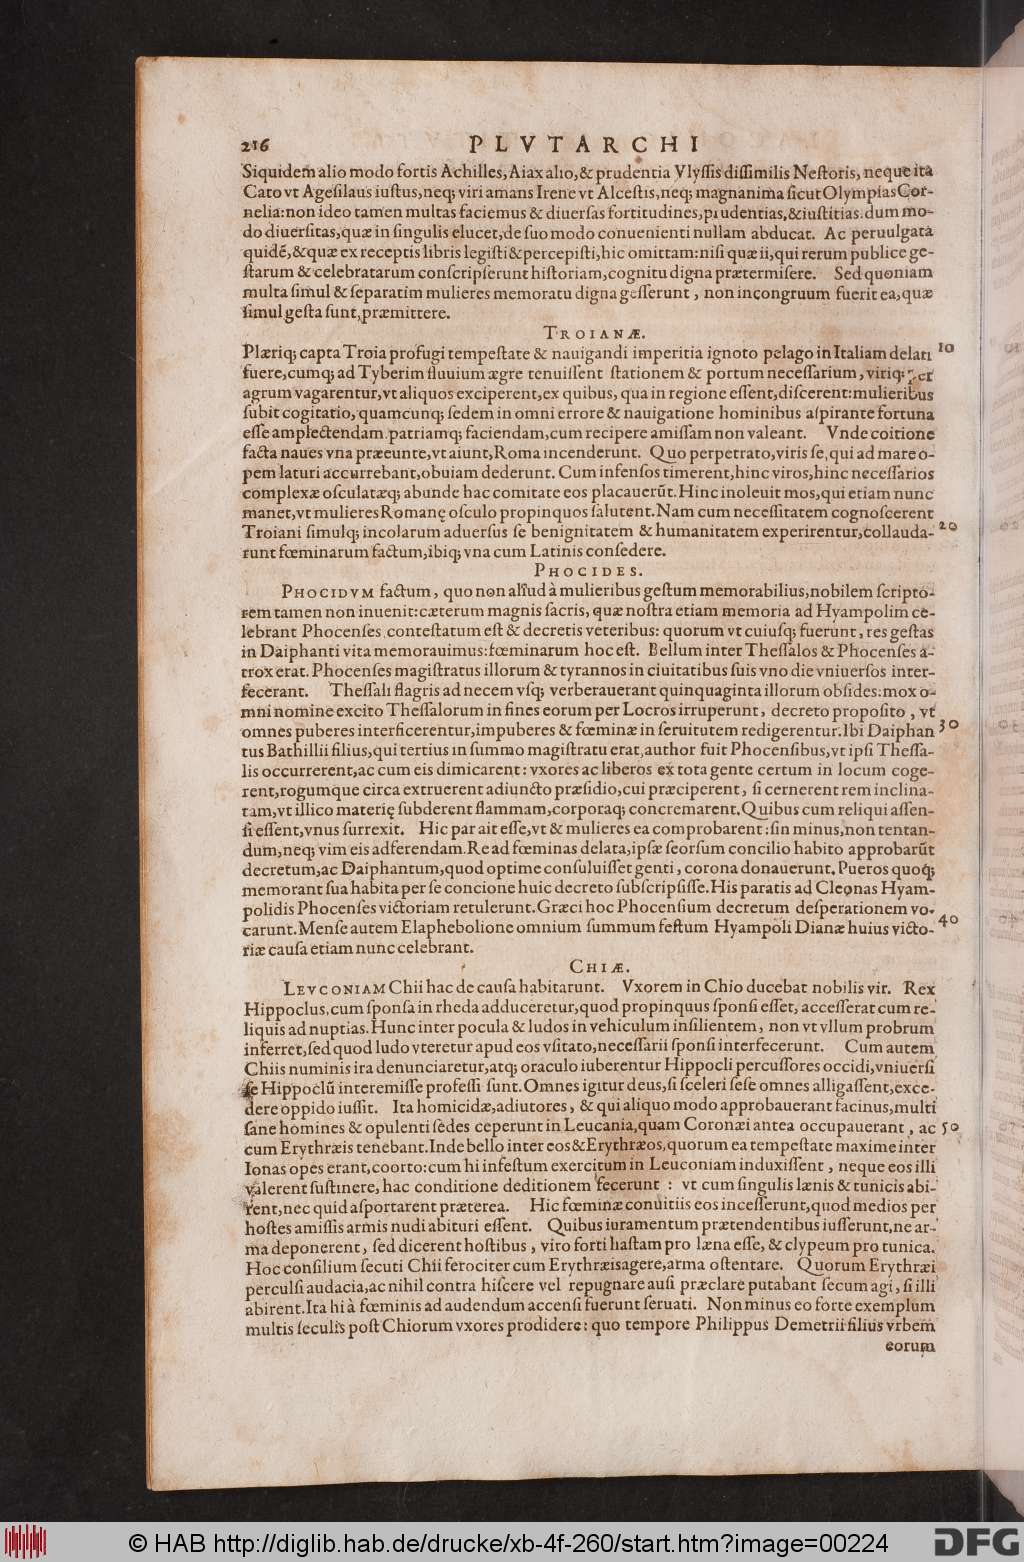 216 PLVTARCHI
Siquidem alio modo fortis Achilles, Aiax alio, & prudentia Vlyſſis diſſimilis Neſtoris, neque ita
Cato vt Ageſilaus iuſtus, neq; viri amans Irene vt Alceſtis, neq; magnanima ſicut Olympias Cor-
nelia: non ideo tamen multas faciemus & diuerſas fortitudines, prudentias, & iuſtitias. dum mo-
do diuerſitas, quæ in ſingulis elucet, de ſuo modo conuenienti nullam abducat. Ac peruulgata
quidẽ, & quæ ex receptis libris legiſti & percepiſti, hic omittam: niſi quæ ii, qui rerum publice ge-
ſtarum & celebratarum conſcripſerunt hiſtoriam, cognitu digna prætermiſere. Sed quoniam
multa ſimul & ſeparatim mulieres memoratu digna geſſerunt, non incongruum fuerit ea, quæ
ſimul geſta ſunt, præmittere.
TROIANÆ.
Plæriq; capta Troia profugi tempeſtate & nauigandi imperitia ignoto pelago in Italiam delati 10
fuere, cumq; ad Tyberim fluuium ægre tenuiſſent ſtationem & portum neceſſarium, viriq; per
agrum vagarentur, vt aliquos exciperent, ex quibus, qua in regione eſſent, diſcerent: mulieribus
ſubit cogitatio, quamcunq; ſedem in omni errore & nauigatione hominibus aſpirante fortuna
eſſe amplectendam. patriamq; faciendam, cum recipere amiſſam non valeant. Vnde coitione
facta naues vna præeunte, vt aiunt, Roma incenderunt. Quo perpetrato, viris ſe, qui ad mare o-
pem laturi accurrebant, obuiam dederunt. Cum infenſos timerent, hinc viros, hinc neceſſarios
complexæ oſculatæq; abunde hac comitate eos placauerũt. Hinc inoleuit mos, qui etiam nunc
manet, vt mulieres Romanę oſculo propinquos ſalutent. Nam cum neceſſitatem cognoſcerent
Troiani ſimulq; incolarum aduerſus ſe benignitatem & humanitatem experirentur, collauda- 20
runt fœminarum factum, ibiq; vna cum Latinis conſedere.
PHOCIDES.
PHOCIDVM factum, quo non aliud à mulieribus geſtum memorabilius, nobilem ſcripto-
rem tamen non inuenit: cæterum magnis ſacris, quæ noſtra etiam memoria ad Hyampolim ce-
lebrant Phocenſes, conteſtatum eſt & decretis veteribus: quorum vt cuiuſq; fuerunt, res geſtas
in Daiphanti vita memorauimus: fœminarum hoc eſt. Bellum inter Theſſalos & Phocenſes a-
trox erat. Phocenſes magiſtratus illorum & tyrannos in ciuitatibus ſuis vno die vniuerſos inter-
fecerant. Theſſali flagris ad necem vſq; verberauerant quinquaginta illorum obſides: mox o-
mni nomine excito Theſſalorum in fines eorum per Locros irruperunt, decreto propoſito, vt
omnes puberes interficerentur, impuberes & fœminæ in ſeruitutem redigerentur. Ibi Daiphan 30
tus Bathillii filius, qui tertius in ſummo magiſtratu erat, author fuit Phocenſibus, vt ipſi Theſſa-
lis occurrerent, ac cum eis dimicarent: vxores ac liberos ex tota gente certum in locum coge-
rent, rogumque circa extruerent adiuncto præſidio, cui præciperent, ſi cernerent rem inclina-
tam, vt illico materię ſubderent flammam, corporaq; concremarent. Quibus cum reliqui aſſen-
ſi eſſent, vnus ſurrexit. Hic par ait eſſe, vt & mulieres ea comprobarent: ſin minus, non tentan-
dum, neq; vim eis adferendam. Re ad fœminas delata, ipſæ ſeorſum concilio habito approbarũt
decretum, ac Daiphantum, quod optime conſuluiſſet genti, corona donauerunt. Pueros quoq;
memorant ſua habita per ſe concione huic decreto ſubſcripſiſſe. His paratis ad Cleonas Hyam-
polidis Phocenſes victoriam retulerunt. Græci hoc Phocenſium decretum deſperationem vo-
carunt. Menſe autem Elaphebolione omnium ſummum feſtum Hyampoli Dianæ huius victo- 40
riæ cauſa etiam nunc celebrant.
CHIÆ.
LEVCONIAM Chii hac de cauſa habitarunt. Vxorem in Chio ducebat nobilis vir. Rex
Hippoclus, cum ſponſa in rheda adduceretur, quod propinquus ſponſi eſſet, acceſſerat cum re-
liquis ad nuptias. Hunc inter pocula & ludos in vehiculum inſilientem, non vt vllum probrum
inferret, ſed quod ludo vteretur apud eos vſitato, neceſſarii ſponſi interfecerunt. Cum autem
Chiis numinis ira denunciaretur, atq; oraculo iuberentur Hippocli percuſſores occidi, vniuerſi
ſe Hippoclũ interemiſſe profeſſi ſunt. Omnes igitur deus, ſi ſceleri ſeſe omnes alligaſſent, exce-
dere oppido iuſſit. Ita homicidæ, adiutores, & qui aliquo modo approbauerant facinus, multi
ſane homines & opulenti ſedes ceperunt in Leucania, quam Coronæi antea occupauerant, ac 50
cum Erythræis tenebant. Inde bello inter eos & Erythræos, quorum ea tempeſtate maxime inter
Ionas opes erant, coorto: cum hi infeſtum exercitum in Leuconiam induxiſſent, neque eos illi
valerent ſuſtinere, hac conditione deditionem fecerunt: vt cum ſingulis lænis & tunicis abi-
rent, nec quid aſportarent præterea. Hic fœminæ conuitiis eos inceſſerunt, quod medios per
hoſtes amiſſis armis nudi abituri eſſent. Quibus iuramentum prætendentibus iuſſerunt, ne ar-
ma deponerent, ſed dicerent hoſtibus, viro forti haſtam pro læna eſſe, & clypeum pro tunica.
Hoc conſilium ſecuti Chii ferociter cum Erythræis agere, arma oſtentare. Quorum Erythræi
perculſi audacia, ac nihil contra hiſcere vel repugnare auſi præclare putabant ſecum agi, ſi illi
abirent. Ita hi à fœminis ad audendum accenſi fuerunt ſeruati. Non minus eo forte exemplum
multis ſeculis poſt Chiorum vxores prodidere: quo tempore Philippus Demetrii filius vrbem
eorum
© HAB http://diglib.hab.de/drucke/xb-4f-260/start.htm?image=00224
DFG